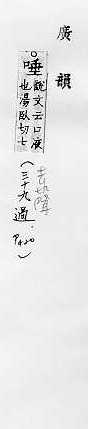 廣韻
唾說文云口液
也湯臥切七
(三十九過. P420)